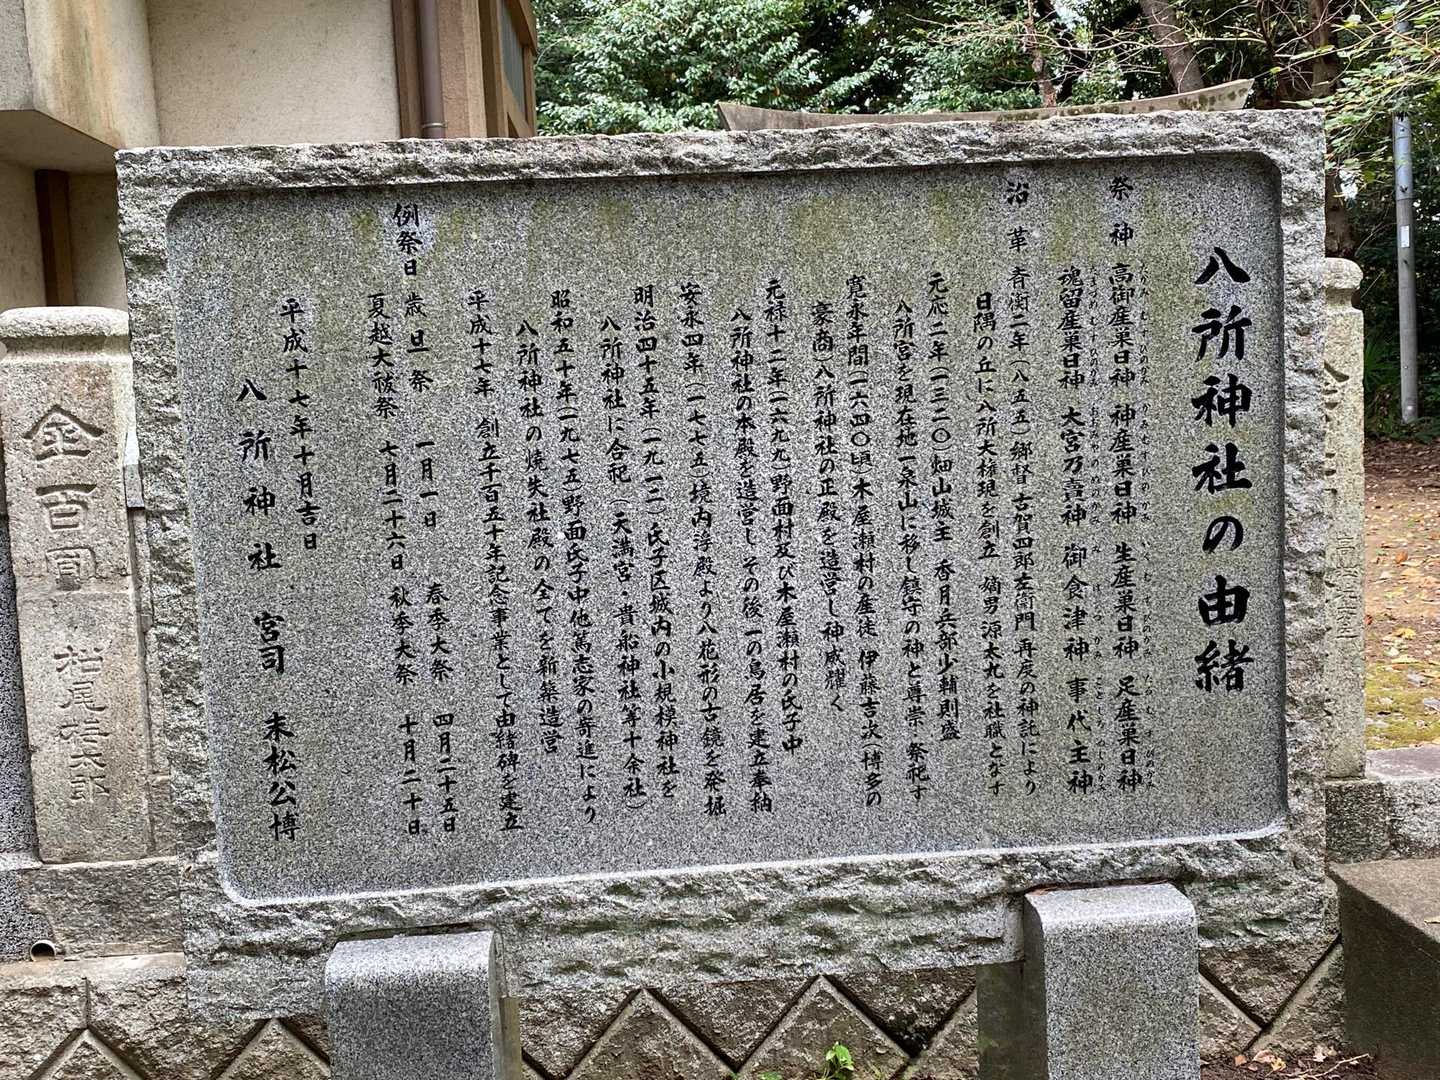 八所神社の由緒
祭神 高御産巣日神 神産巣日神 生産巣日神 足産巣日神
魂留産巣日神 大宮乃賣神 御食津神 事代主神
沿革 斉衡二年(八五五)郷督古賀四郎左衛門 再度の神託により
日隅の丘に八所大権現を創立 嫡男源太九を社職となす
元応二年(一三二〇)畑山城主 香月兵部少輔則盛
八所宮を現在地一泉山に移し鎮守の神と尊崇・祭祀す
寛永年間(一六四〇頃)木屋瀬村の産徒 伊藤吉次(博多の
豪商)八所神社の正殿を造営し神威耀く
元禄十二年(一六九九)野面村及び木屋瀬村の氏子中
八所神社の本殿を造営し その後一の鳥居を建立奉納
安永四年(一七七五)境内浮殿より八花形の古鏡を発掘
明治四十五年(一九一二)氏子区域内の小規模神社を
八所神社に合祀(天満宮・貴船神社等十余社)
昭和五十年(一九七五)野面氏子中他篤志家の寄進により
八所神社の焼失社殿の全てを新築造営
平成十七年 創立千百五十年記念事業として由緒碑を建立
例祭日 歳旦祭 一月一日 春季大祭 四月二十五日
夏越大祓祭 七月二十六日 秋季大祭 十月二十日
平成十七年十月吉日
八所神社 宮司 末松公博
金百圓